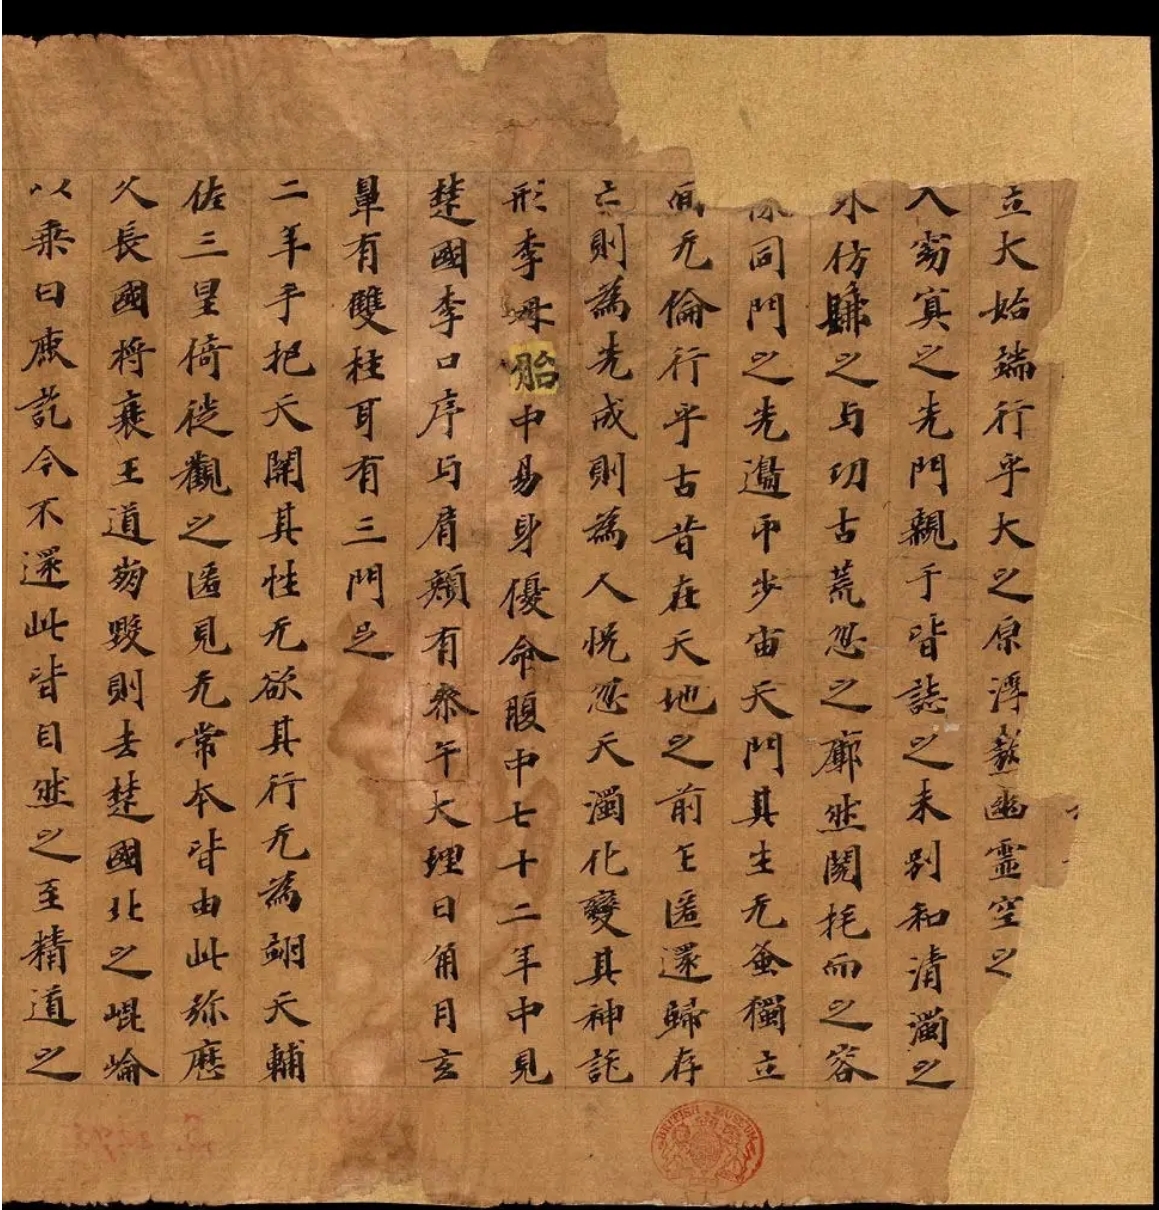 立大始端行乎大之原浮熬幽靈空之
入窈冥之先門親乎皆誌之未別和清濁之
外仿歸之与功古荒忽之廓然閱托而之容
像同門之先邊帀步宙天門其生无蚤獨立
而无倫行乎古昔在天地之前乍匿還歸存
亡則為先成則為人怳忽天濁化變其神託
形李母胎中易身優命腹中七十二年中見
楚國李口序与肩頰有參午大理日角月玄
鼻有雙柱耳有三門足
二年手把天開其性无欲其行无為翊天輔
佐三皇倚從觀之匿見无常本皆由此弥歷
久長國將衰王道崩毀則去楚國北之崐崘
以乘白鹿訖今不還此皆自然之至精道之
BRITISH MUSEUM